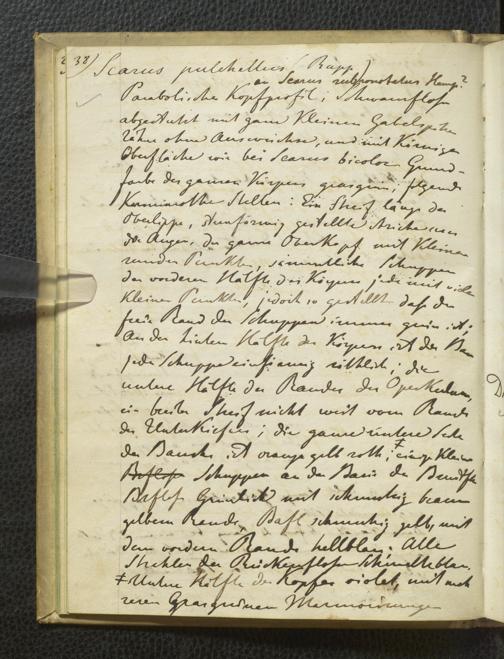 38) Scarus pulchellus (Rüpp.)
an Scarus rubronotatus Hemp?
Parabolisches Kopfprofil; Schwanzflosse
abgestutzt mit ganz kleinen Gabelspitzen
Zähne ohne Auswüchse, und mit Körniger
Oberfläche wie bei Scarus bicolor Grund-
farbe des ganzen Körpers grasgrün; folgende
Karminrothe Stellen: Ein Streif längs der
Oberlippe, sternförmig gestellte Striche um
die Augen, der ganze Oberkopf mit Kleinen
runden Punkten, sämmtliche Schuppen
der vorderen Hälfte des Körpers jede mit vielen
Kleinen Punkten, jedoch so gestellt daß der
freie Rand der Schuppen immer grün ist;
An der hintern Hälfte des Körpers ist der
jeder Schuppe einfärmig röthlich; die
untere Hälfte des Randes des Operkulums,
ein breiter Streif nicht weit vom Rande
des Unterkiefers; die ganze untere Seite
des Bauchs ist orange gelb roth; ‡ einige Kleine
Schuppen an der Basis der Brustflosse
Brstfl. mit schmutzig braun
gelbem Rande, Bafl schmutzig gelb, mit
dem vordern Rande hellblau; Alle
Strahlen der Rückenflosse
‡ Untere Hälfte des Kopfes violet, mit meh
reren Grasgrünen Marmorirungen